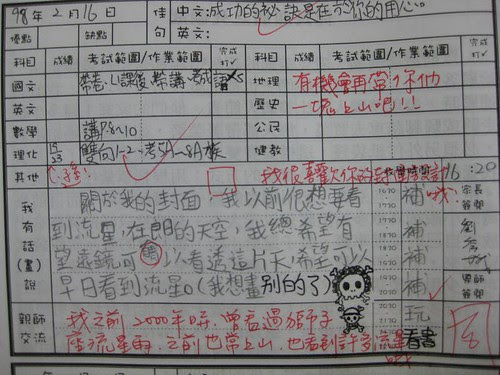 98年2月16日
佳句
中文:成功的祕訣是在於你的用心。
英文:
優點 缺點
科目 成績 考試範圍/作業範圍 完成打✓ 科目 成績 考試範圍/作業範圍 完成打✓
國文 地理
有機會再帶你他
英文 歷史
一塊上山吧!!
數學 講P.8~10 公民
理化 15/23 雙向1-2、考5A~8A族 健教
其他
我很喜歡你的封面設計 16:20
我有話(畫)說
關於我的封面,我以前很想要看
到流星,在閃的天空,我總希望有
望遠鏡可以看透這片天,希望可以
早日看到流星。(我想畫別的了)
補
補
補
補
玩
看書
家長簽章
親師交流
我之前2000年時,曾看過獅子
座流星雨,之前也常上山,也看到許多流星
哦
78